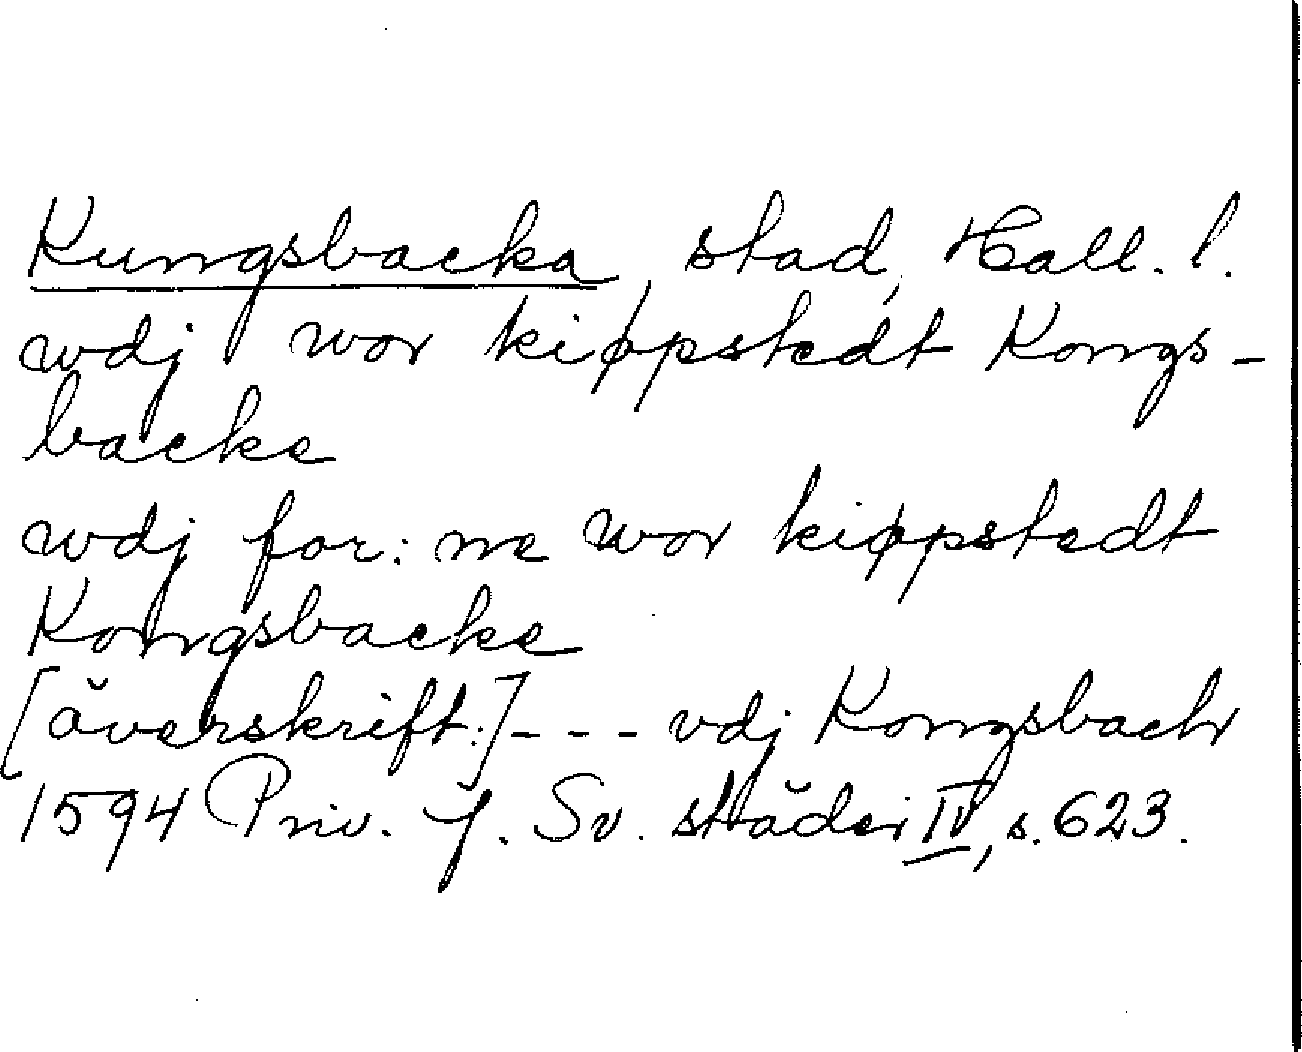 Kungsbacka, stad, Hall. l.
wdj wor kiøpstedt Kongs-
backe
wdj for: ne wor kiøpstedt
Kongsbacke
[överskrift:] --- vdj Kongsbach
1594 Priv. f. Sv. städer IV, s. 623.